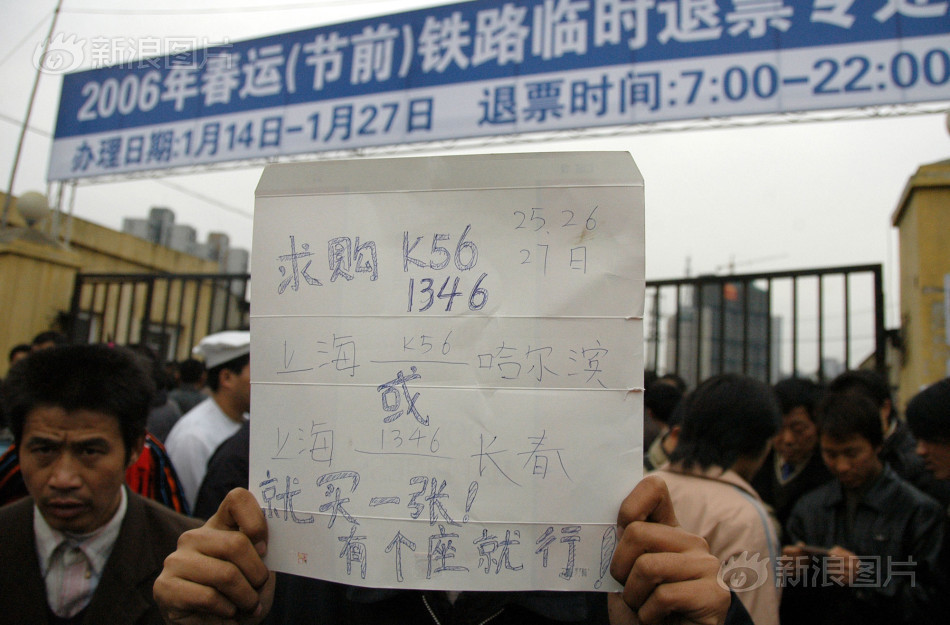 新浪图片
2006年春运(节前)铁路临时退票专
办理日期:1月14日-1月27日 退票时间:7:00-22:00
求购 K56 25.26
1346 27日
上海 K56 哈尔滨
或
上海 1346 长春
就买一张!
有个座就行!
新浪图片